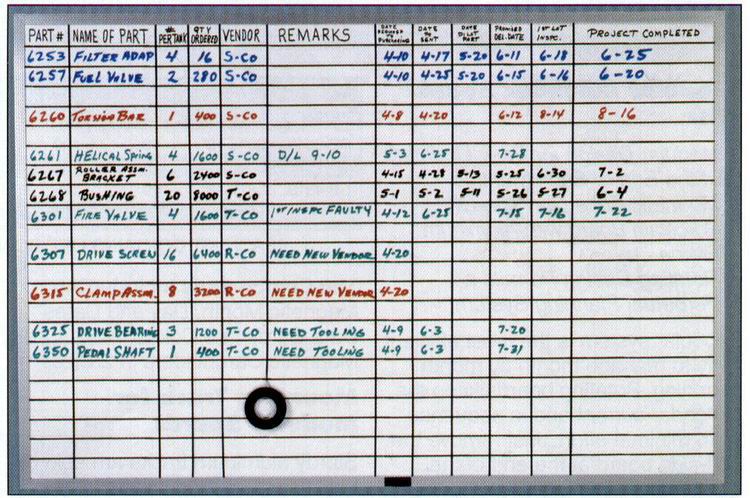 PART# NAME OF PART #L PER TANK QTY ORDERED VENDOR REMARKS DATE TO PURCHASING DATE TO SENT DATE PART PROMISED DEL. DATE 1ST LOT INSPC. PROJECT COMPLETED
6253 FILTER ADAP 4 16 S-CO 4-10 4-17 5-20 6-11 6-18 6-25
6257 FUEL VALVE 2 280 S-CO 4-10 4-25 5-20 6-15 6-16 6-20
6260 TORSION BAR 1 400 S-CO 4-8 4-20 6-12 8-14 8-16
6261 HELICAL Spring 4 1600 S-CO D/L 9-10 5-3 6-25 7-28
6267 ROLLER ASSM. BRACKET 6 2400 S-CO 4-15 4-28 5-13 5-25 6-30 7-2
6268 BUSHING 20 8000 T-CO 5-1 5-2 5-11 5-26 5-27 6-4
6301 FIRE VALVE 4 1600 T-CO 1ST INSPC FAULTY 4-12 6-25 7-15 7-16 7-22
6307 DRIVE SCREW 16 6400 R-CO NEED NEW VENDOR 4-20
6315 CLAMP ASSM. 8 3200 R-CO NEED NEW VENDOR 4-20
6325 DRIVE BEARING 3 1200 T-CO NEED TOOLING 4-9 6-3 7-20
6350 PEDAL SHAFT 1 400 T-CO NEED TOOLING 4-9 6-3 7-31